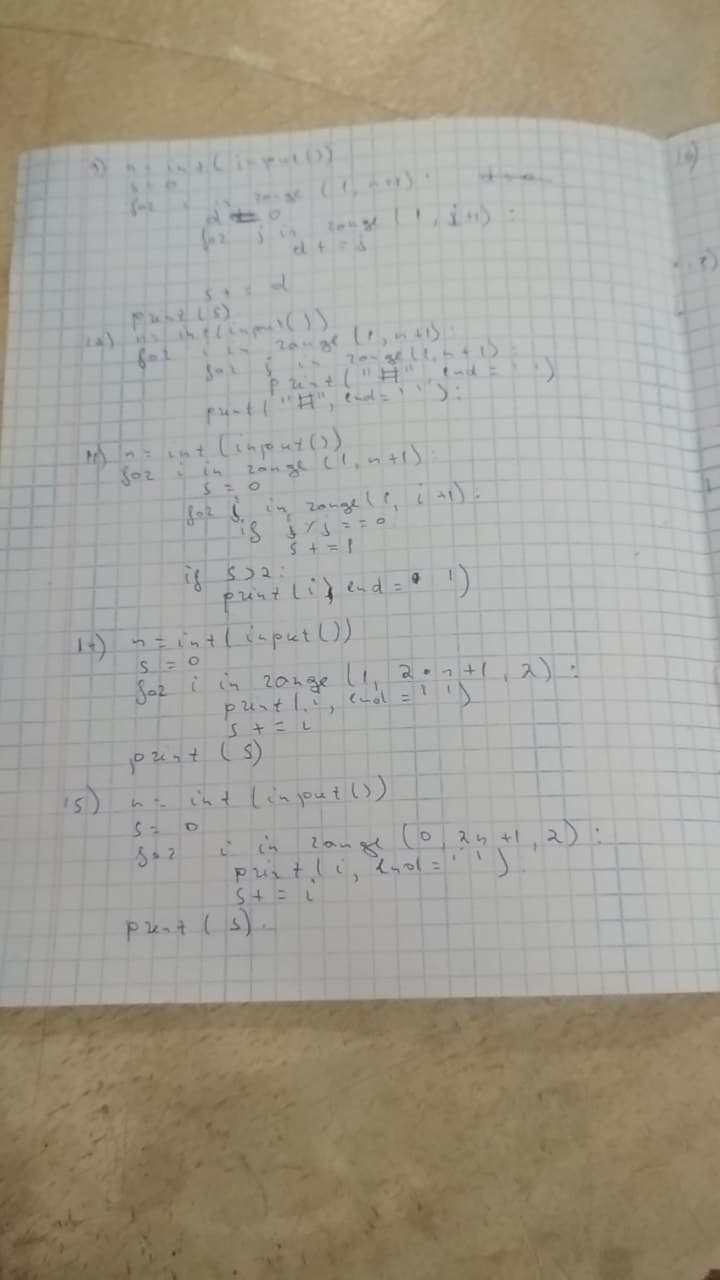 9) n = int(input())
s = 0
for i in range (1, n+1):
d = 0
for j in range (1, i+1):
d += j
s += d
print(s)
n = int(input())
for i in range (1, n+1):
for j in range(1, n+1):
print("#", end = ' ')
print("#", end = ' '):
n = int(input())
for i in range (1, n+1):
s = 0
for j in range(1, i+1):
if j % j == 0
s += 1
if s > 2:
print(i, end = ' ')
14) n = int(input())
s = 0
for i in range (1, 2*n+1, 2):
print(i, end = ' ')
s += i
print (s)
15) n = int (input())
s = 0
for i in range (0, 2n+1, 2):
print(i, end = ' ')
s += i
print (s)
10)